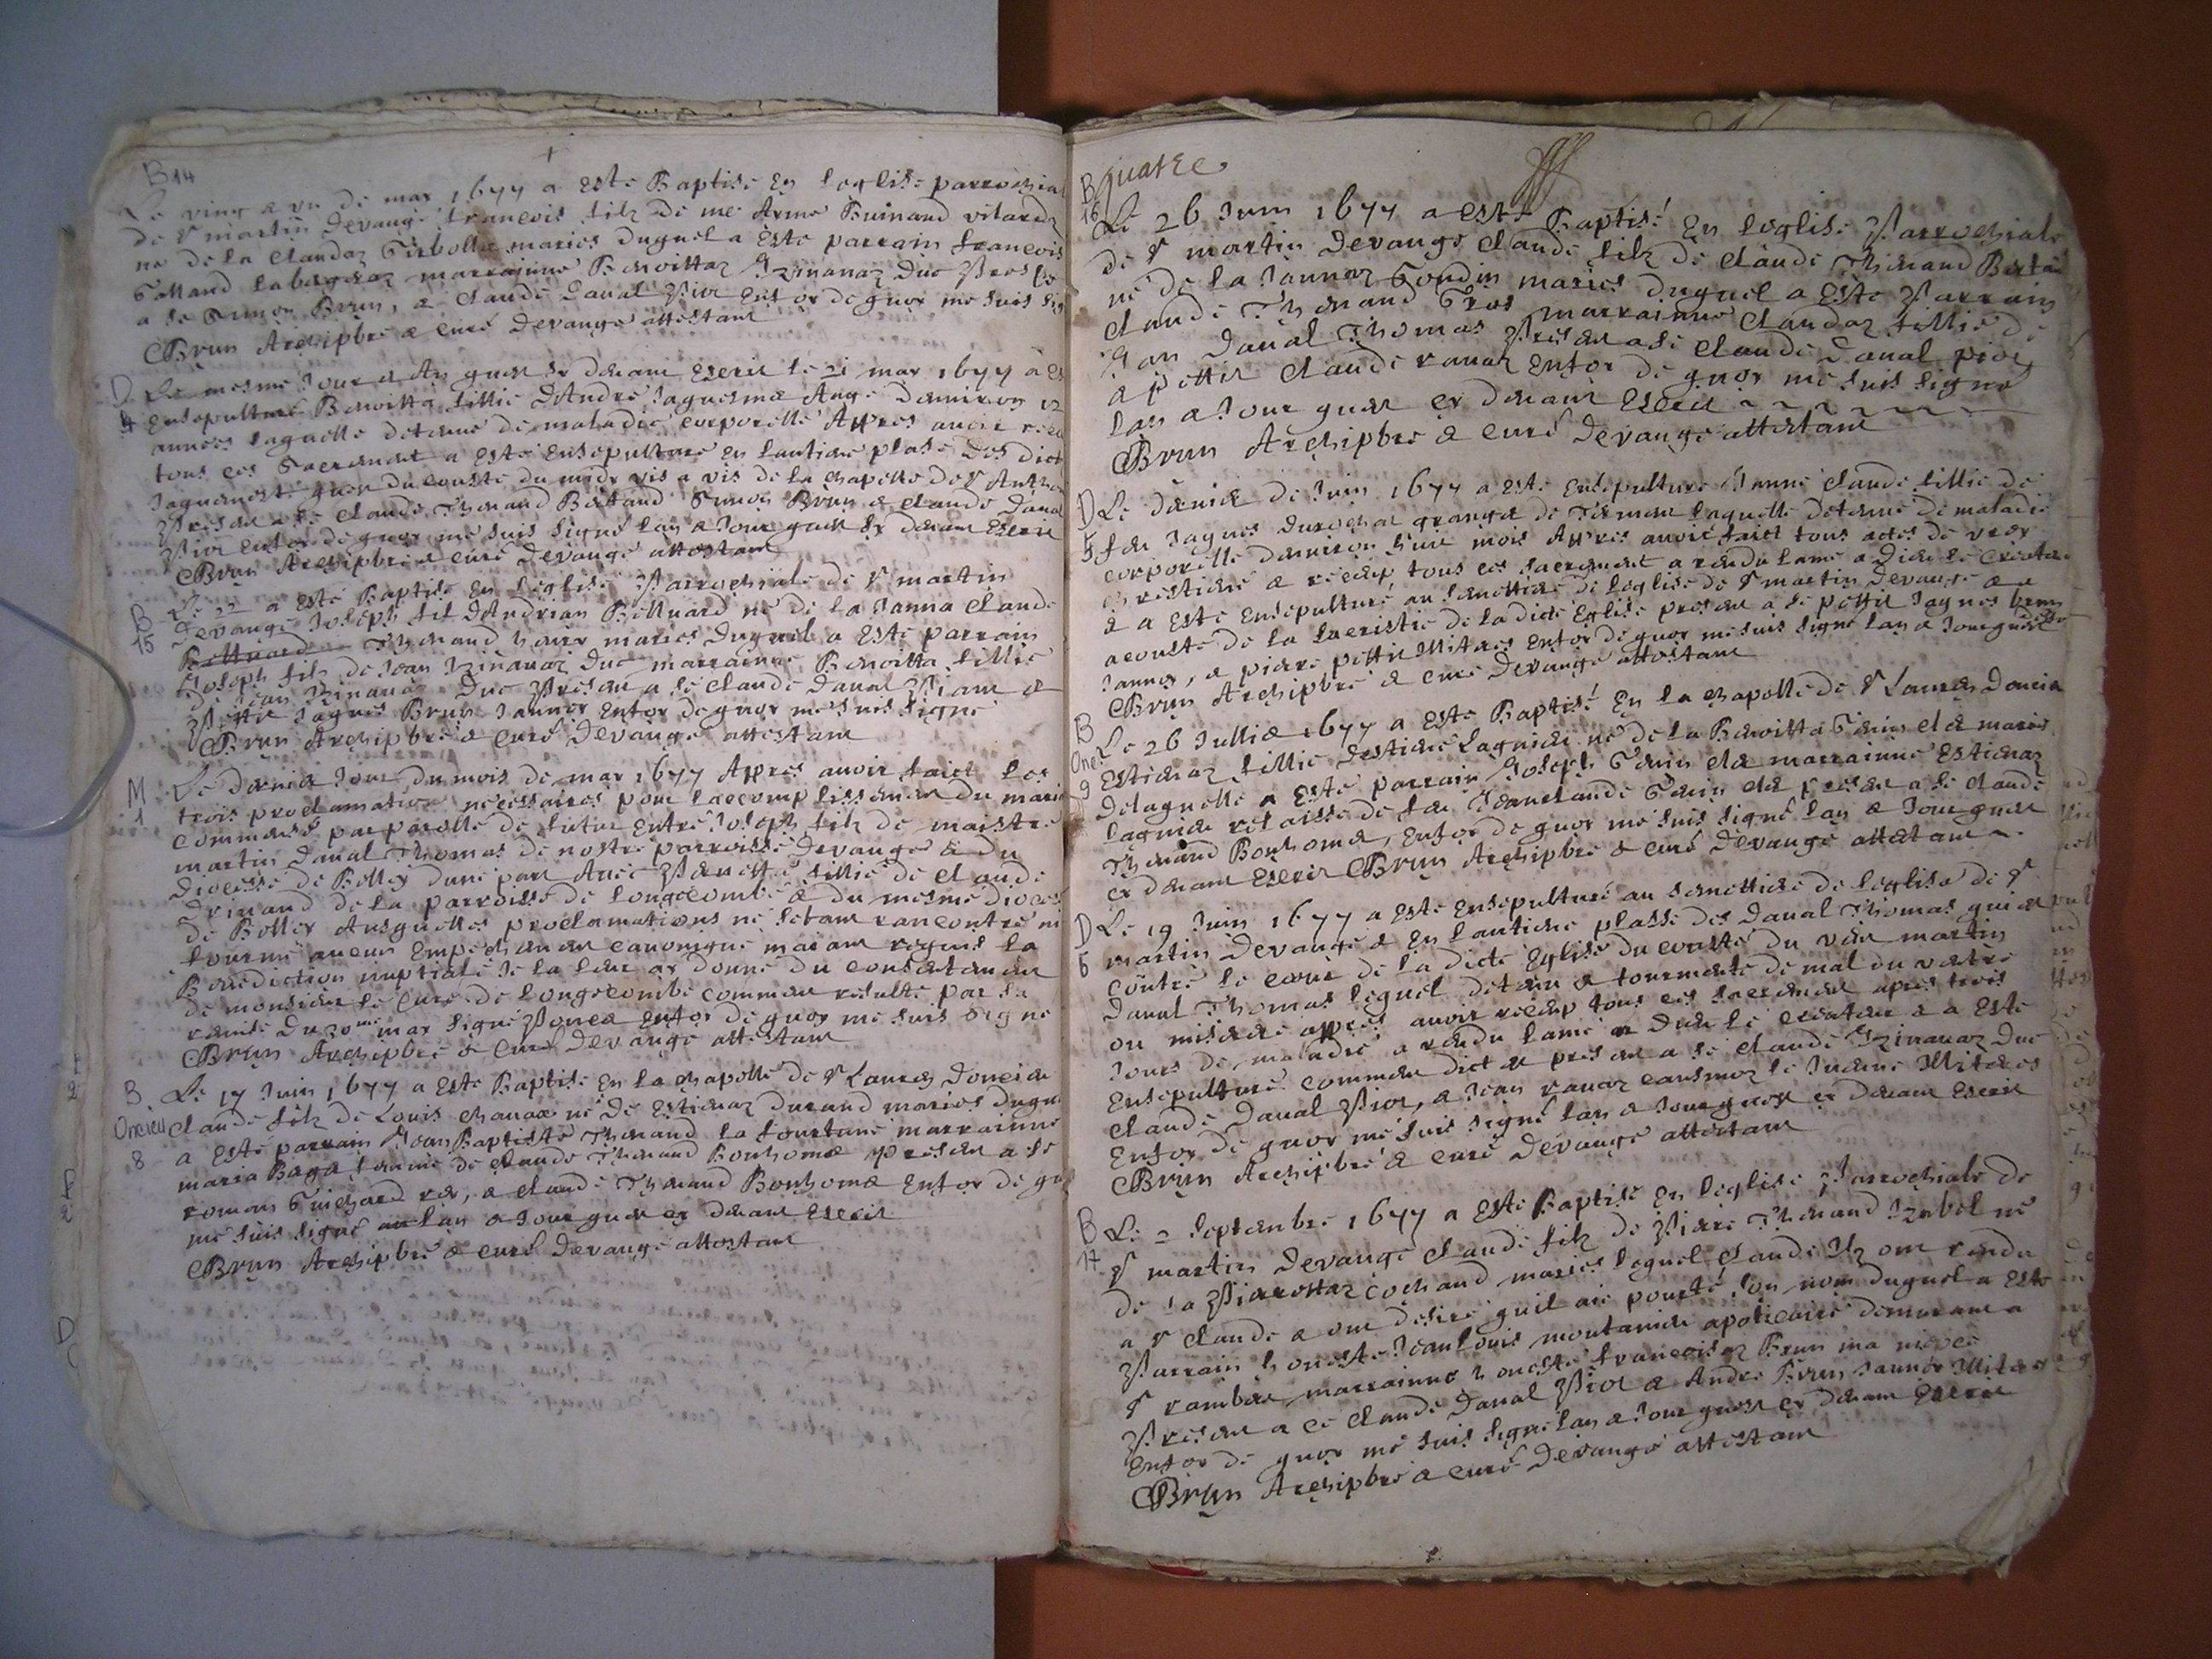 B 14
Le ving & un de may 1677 a este Baptisé En l eglise parrochia
de St martin Devange francois filz de me Aymé Buinand
né de la Claudaz mariés duquel a Este parrain francois
marrainne Benoittaz Izinanaz Duc
a se Brun, & Claude Daval Prior Enfoy de quoy me suis sig
Brun Archipbre & curé Devange attestant
D
4
Le mesme Jour & An que sy devant Escrit le 21 may 1677 a Es
Ensepulturé Benoitta fillie D André Jaquemet Augé denviron 12
années laquelle detenue de maladie corporelle Appres avoir receu
tous ces Sacremant a Esté Ensepulturé En lantiene plase Des dict
du cousté du midy vis a vis de la chapelle de St Antho
Presen a se Claude Thenand Bertand Simon Brun & Claude Daval
Prior Enfoy de quoy me suis signé lan & Jour que sy devant Escrit
Brun Archipbre & curé Devange attestant
B
15
Le 22 a Esté Baptisé En l eglise Parrochiale de St martin
Devange Joseph fil D Andrian Bettuard né de la Janna Claude
Thenand mariés Duquel a Esté parrain
Joseph filz de Jean Izinanaz Duc marrainne Benoitta fillie
de Jean Izinanaz Duc Presen a se Claude Daval &
Pettit Jaques Brun Jannoy Enfoy de quoy me suis signé
Brun Archipbre & curé Devange attestant
M
1
Le Dernier Jour du mois de may 1677 Appres avoir faict les
trois proclamation necessaires pour laccomplissemen du maria
commansé par parolle de futur Entre Joseph filz de maistre
martin Daval Thomas de nostre parroisse Devange & du
Diocesse de Belley dune part Avec Pernette fillie de Claude
Drinand de la parroisse de Longecombe & du mesme dioces
de Belley Ausquelles proclamations ne setant rancontré ni
fourmé aucun Empechemen canonique mayant requis la
Benediction nuptiale Je la leur ay donné du consentemen
de monsieur le Curé de Longecombe commen resulte par sa
remise du 30me may signé Enfoy de quoy me suis signé
Brun Archipbre & Curé Devange attestant
B
Oncieu
8
Le 17 Juin 1677 a Esté Baptisé En la chapelle de St Lauren Doncieu
Claude filz de Louis né de Estienaz Durand mariés duqu
a Esté parrain Jean Baptiste Thenand la fourtune marrainne
maria femme de Claude Thenand Bonhome presen a se
romain Guichard &, & Claude Thenand Bonhome Enfoy de qu
me suis signé lan & Jour que sy devant Escrit
Brun Archipbre & curé Devange attestant
quatre
B
16
Le 26 Juin 1677 a esté Baptisé En l eglise Parrochiale
de St martin Devange Claude filz de Claude Thenand Bertan
né de la Jannaz Goudin mariés duquel a Esté Parrain
Claude Thenand Gros marrainne Claudaz fillie de
Jan Daval Thomas Presen a se Claude Daval prior
& pettit Claude ravaz Enfoy de quoy me suis signé
lan & Jour que sy devant Escrit
Brun Archipbre & curé Devange attestant
D
5
Le Dernier de Juin 1677 a esté Ensepulturé Janne Claude fillie de
feu Jaques Durochat granger de laquelle detenue de maladie
corporelle denviron huit mois Appres avoir faict tous actes de vray
chrestiene & receup tous ces sacremant a rendu lame a Dieu le Createur
& a Esté Ensepulturé au semettiere de leglise de St martin Devange &
a cousté de la sacristie de la dicte Eglise presen a se pettit Jaques brun
Jannoy, & piere pettit Mitres Enfoy de quoy me suis signé lan & Jour que
Brun Archipbre & curé Devange attestant
B
Once
9
Le 26 Jullier 1677 a Esté Baptisé En la chapelle de St Lauren Doncieu
Estienaz fillie Destiene Lagnieu né de la Benoitta mariés
De laquelle a Esté parrain Joseph marrainne Estienaz
Lagnieu relaisse de feu Jean Claude presen a se Claude
Thenand Bonhome, Enfoy de quoy me suis signé lan & Jour que
sy devant Escrit Brun Archipbre & curé Devange attestant
D
6
Le 19 Juin 1677 a Esté Ensepulturé au semettiere de leglise de St
martin Devange & En lantiene plasse des Daval Thomas qui est
contre le cœur de la dicte Eglise du cousté du vent martin
Daval Thomas lequel detenu & tourmenté de mal du ventre
ou miserere appres avoir receup tous ces sacremen apres trois
Jours de maladie a rendu lame a Dieu le createur & a Esté
Ensepulturé commen dict & presen a se Claude Izinanaz Duc
Claude Daval Prior, & Jean ravaz le Juene Mitres
Enfoy de quoy me suis signé lan & Jour que sy devant Escrit
Brun Archipbre & curé Devange attestant
B
17
Le 2 Septembre 1677 a Esté Baptisé En l eglise Parrochiale de
St martin Devange Claude filz de Piere Thenand Izabel né
de la Pierrettaz Cochand mariés lequel Claude Ilz ont rendu
a St Claude & ont desiré quil aie pourté son nom duquel a Esté
Parrain honeste Jean Louis montanier apoticaire demurant a
St rambert marrainne honeste francoisaz Brun ma niepce
Presen a ce Claude Daval Prior & André Brun Jannoy Mitres
Enfoy de quoy me suis signé lan & Jour que sy devant Escrit
Brun Archipbre & curé Devange attestant